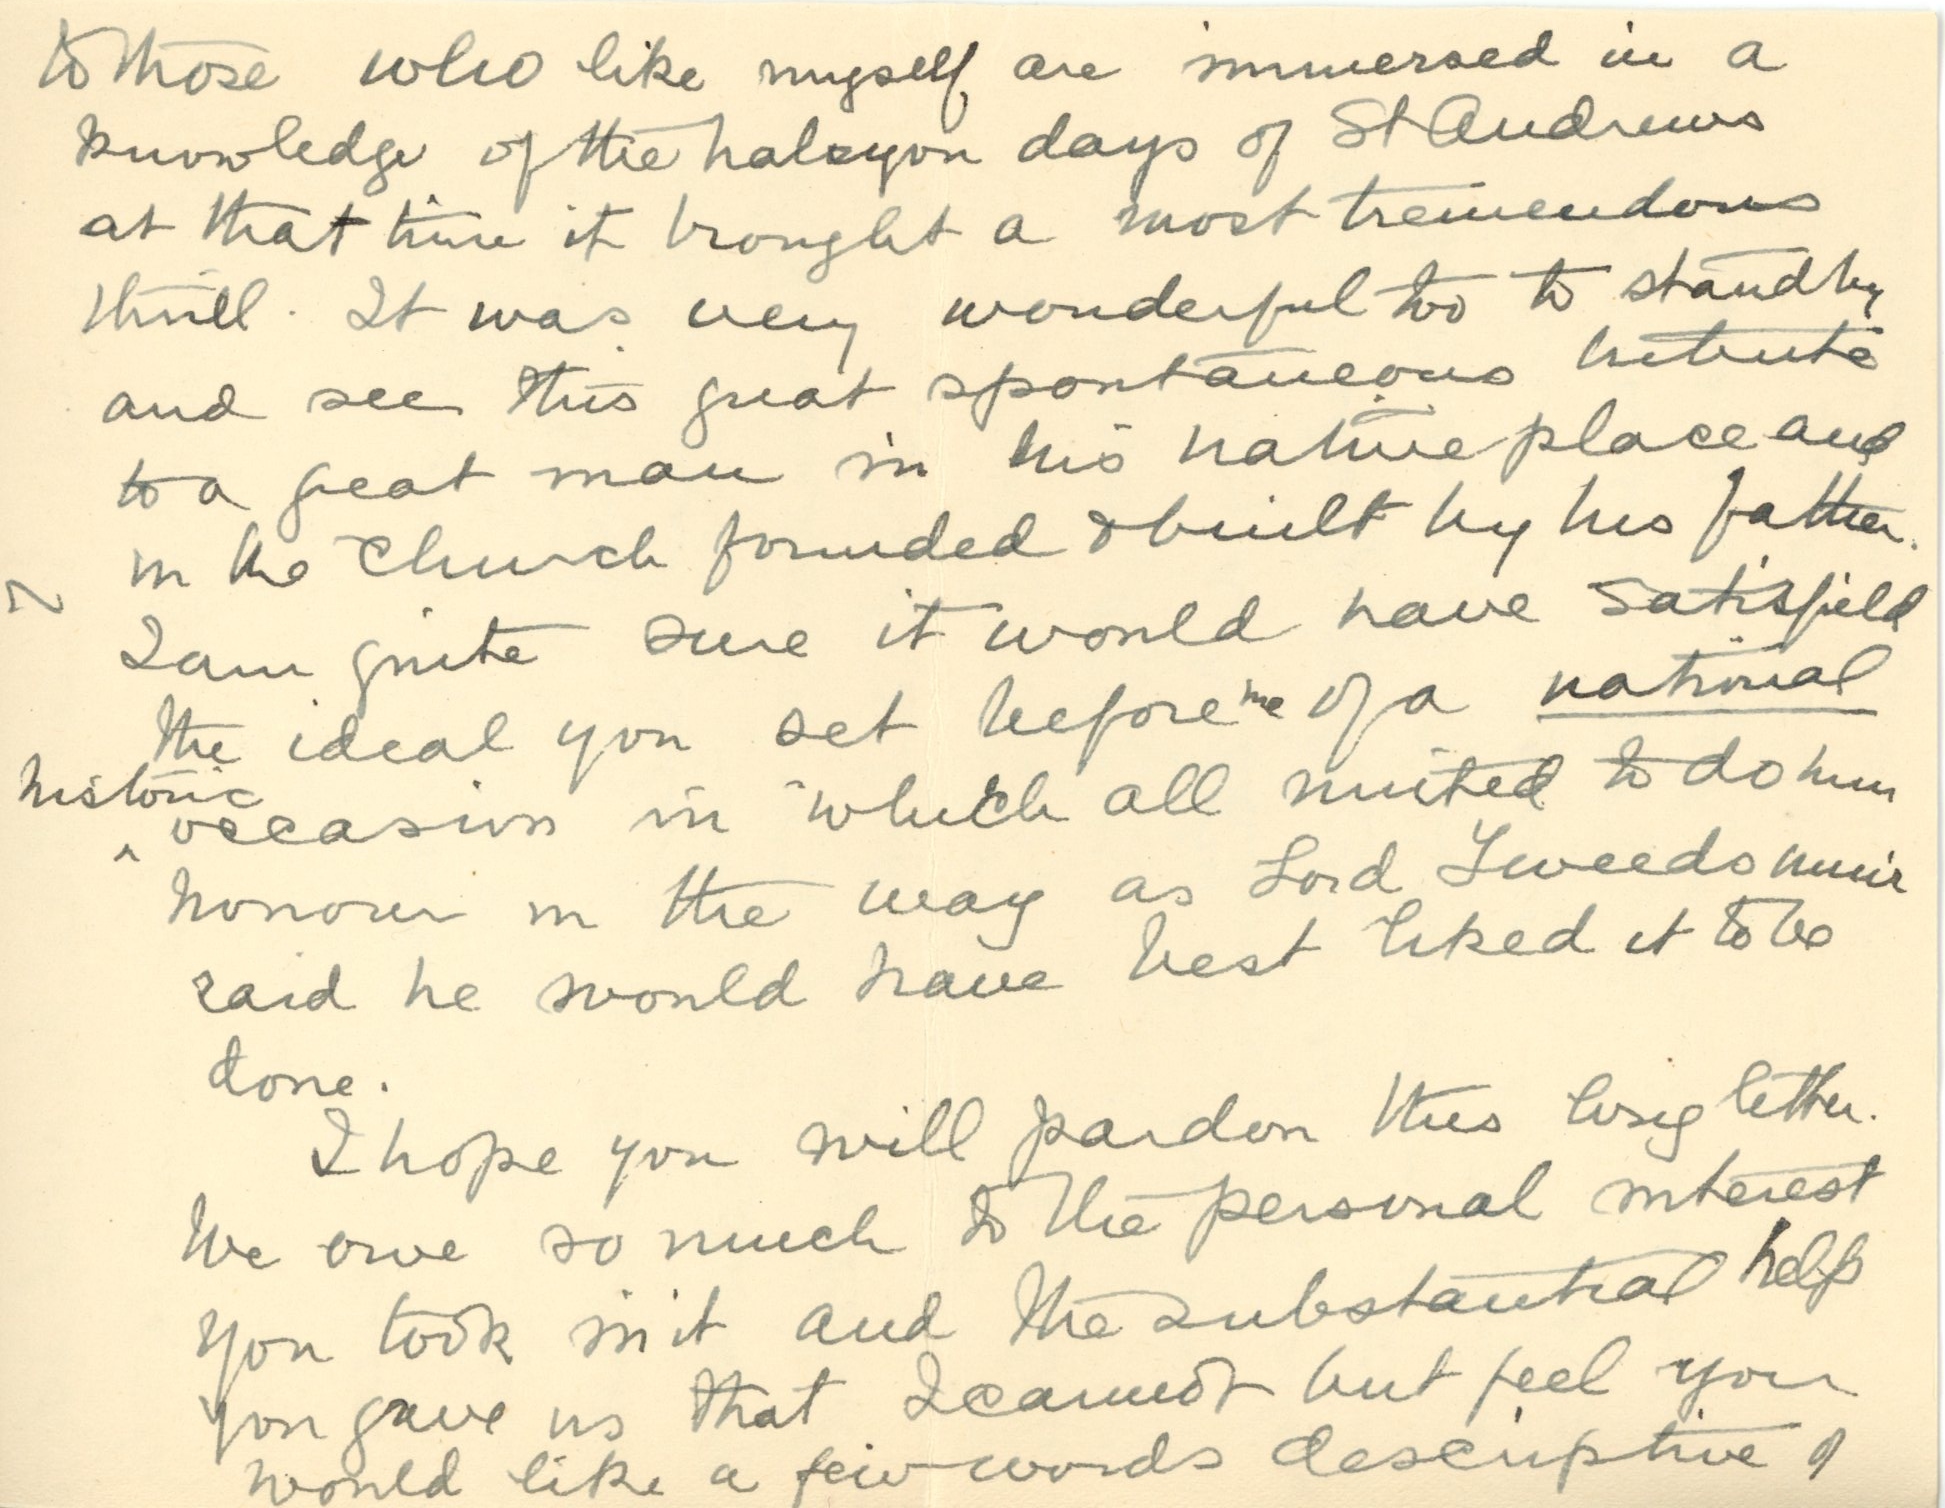 to those who like myself are immersed in a
knowledge of the halcyon days of St Andrews
at that time it brought a most tremendous
thrill. It was very wonderful too to stand by
and see this great spontaneous tribute
to a great man in his native place and
in the Church founded & built by his father.
I am quite sure it would have satisfield
the ideal you set before me of a national
historic
occasion in which all united to do him
honour in the way as Lord Tweedsmuir
said he would have best liked it to be
done.
I hope you will pardon this long letter.
We owe so much to the personal interest
you took in it and the substantial help
you gave us that I cannot but feel you
would like a few words descriptive of